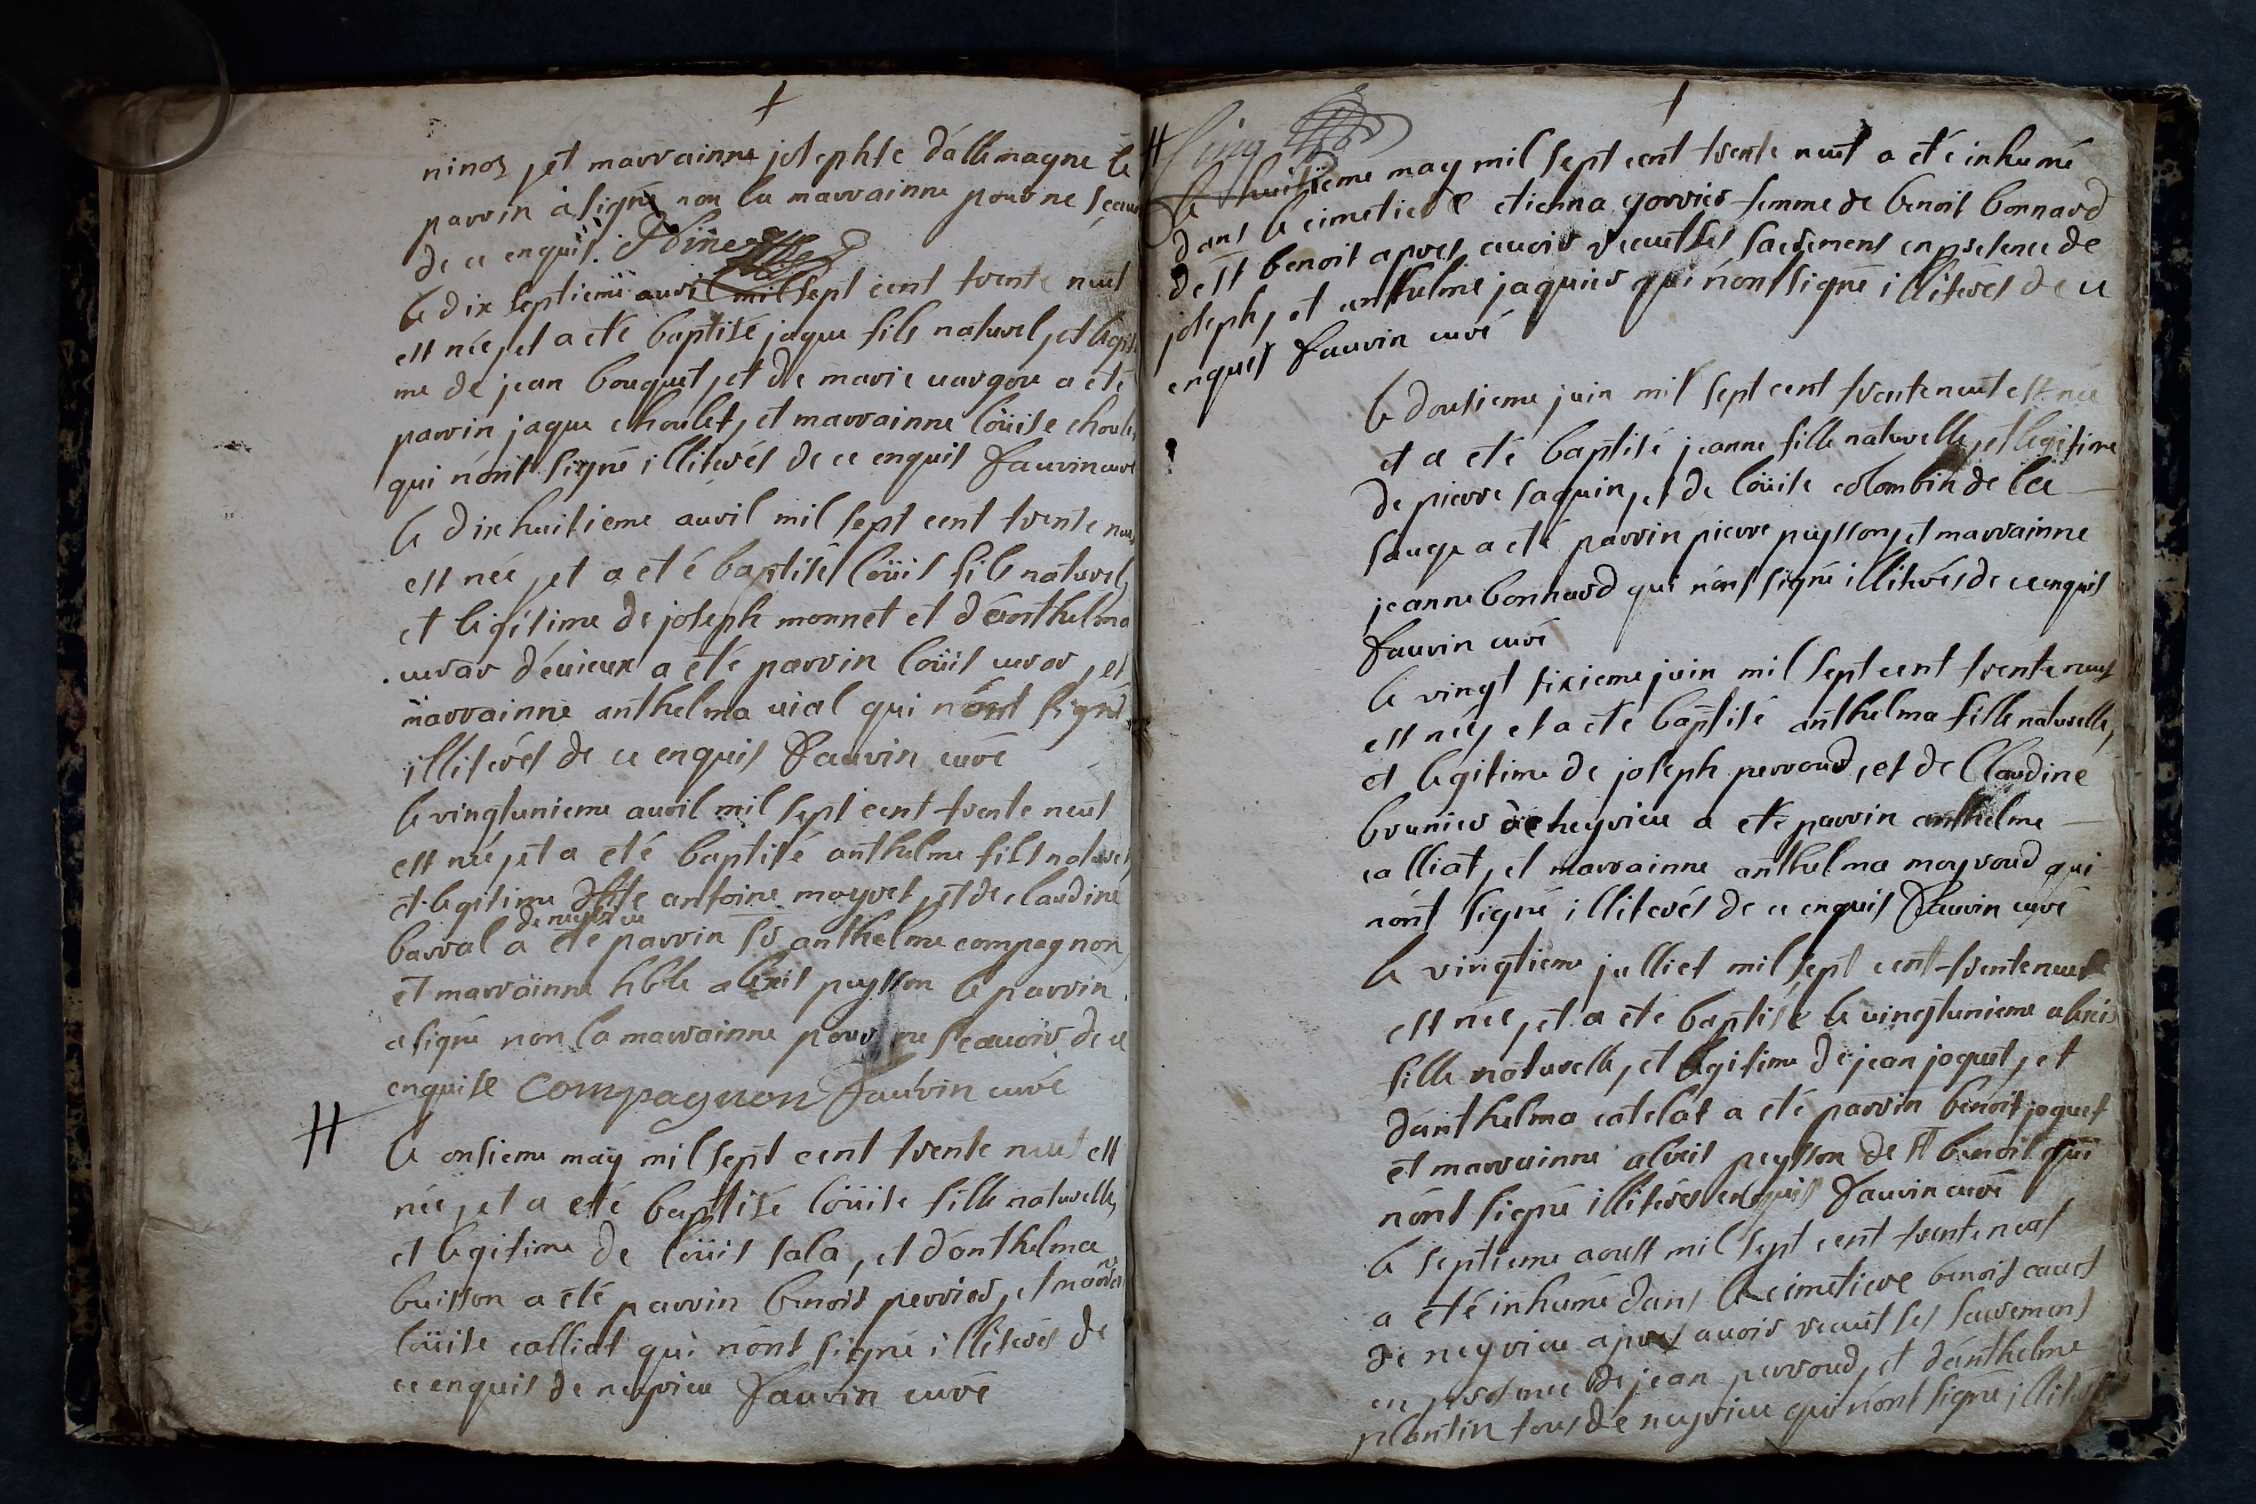 ninos, et marrainne josephte d'allemagne le
parrin a signé non la marrainne pour ne sçauoi
de ce enquis.
le dix septieme auril mil sept cent trente neuf
est née, et a eté baptisé jaque fils naturel, et legiti
me de jean bouquet, et de marie uargou a eté
parrin jaque choulet, et marrainne loüise choulet
qui n'ont signé illiterés de ce enquis fauvin curé
le dix huitieme auril mil sept cent trente neuf
est née, et a eté baptisé loüis fils naturel,
et legitime de joseph monnet et d'anthelma
uerar d'éuieux a eté parrin loüis uerar, et
marrainne anthelma uial qui n'ont signé
illiterés de ce enquis fauvin curé
le vingtunieme auril mil sept cent trente neuf
est née, et a eté baptisé anthelme fils naturel,
et legitime antoine mayret, et de claudine
de neyrieu
barral a eté parrin sr anthelme compagnon,
et marrainne hble alexis peysson le parrin
a signé non la marrainne pour ne sçauoir de ce
enquise compagnon fauvin curé
H le onsieme may mil sept cent trente neuf est
née, et a eté baptisé loüise fille naturelle,
et legitime de loüis sala, et d'anthelma
buisson a eté parrin benoit perrier, et marrai
loüise calliat qui n'ont signé illiterés de
ce enquis de neyrieu fauvin curé
H cinq
le huitieme may mil sept cent trente neuf a eté inhumé
dans le cimetiere etienna gorrier femme de benoit bonnard
de st benoit apres auoir receut ses sacremens en presence de
joseph, et anthelme jaquier qui n'ont signé illiterés de ce
enquis fauvin curé
le dousieme juin mil sept cent trente neuf est née
et a eté baptisé jeanne fille naturelle, et legitime
de pierre saquin, et de loüise colombin de la
sauge a eté parrin pierre peysson, et marrainne
jeanne bonnard qui n'ont signé illiterés de ce enquis
fauvin curé
le vingt sixieme juin mil sept cent trente neuf
est née, et a eté baptisé anthelma fille naturelle,
et legitime de joseph perroud, et de claudine
brunier de neyrieu a eté parrin anthelme
calliat, et marrainne anthelma mayroud qui
n'ont signé illiterés de ce enquis fauvin curé
le vingtieme julliet mil sept cent trente neuf
est née, et a eté baptisé le vingtunieme alexis
fille naturelle, et legitime de jean joquet, et
d'anthelma catelat a eté parrin benoit joquet
et marrainne alexis peysson de st benoit qui
n'ont signé illiterés enquis fauvin curé
le septieme aoust mil sept cent trente neuf
a eté inhumé dans le cimetiere benoit
de neyrieu apres auoir receut ses sacremens
en presence de jean perroud, et d'anthelme
plantin tous de neyrieu qui n'ont signé illiterés